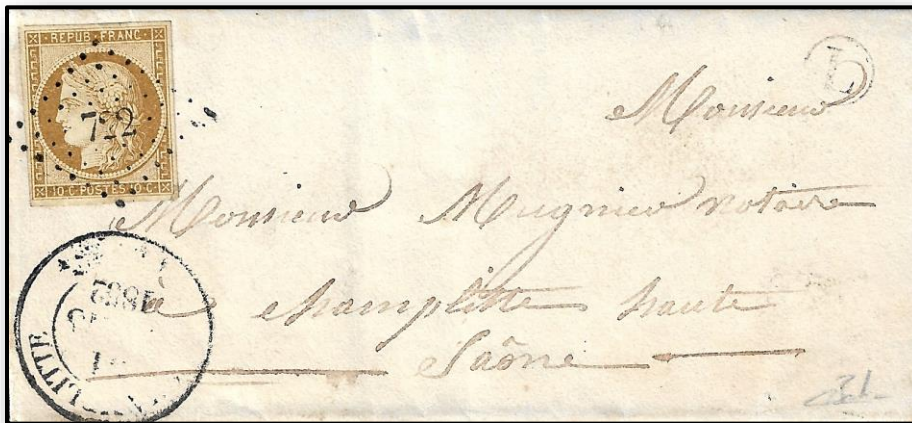 REPUB·FRANC·
722
10·C·POSTES·10·C·
L
Monsieur
Monsieur Mugnier notaire
à champlitte haute
Saône
1852
LITTE